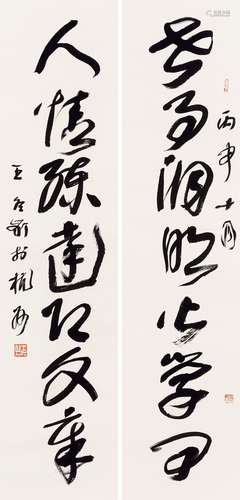 世事洞明皆学问
丙申十月
人情练達即文章
王冬龄於杭州